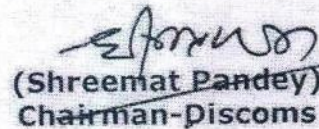 (Shreemat Pandey)
Chairman-Discoms